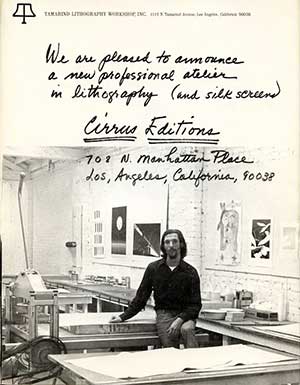 TAMARIND LITHOGRAPHY WORKSHOP, INC. 1112 N Tamarind Avenue, Los Angeles, California 90038
We are pleased to announce
a new professional atelier
in lithography (and silk screens)
Cirrus Editions
708 N. Manhattan Place
Los, Angeles, California, 90038